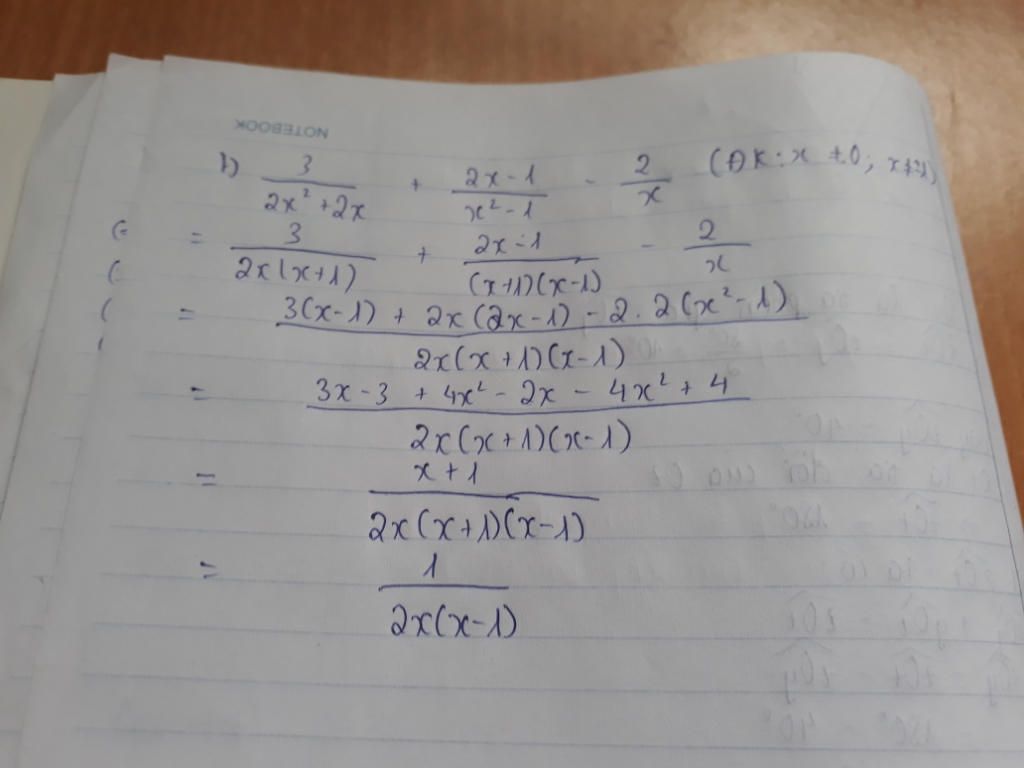 NOTEBOOK
b) 3/(2x² + 2x) + (2x - 1)/(x² - 1) - 2/x (ĐK: x ≠ 0; x ≠ ±1)
= 3/(2x(x+1)) + (2x - 1)/((x+1)(x-1)) - 2/x
= (3(x-1) + 2x(2x-1) - 2.2(x² - 1))/(2x(x+1)(x-1))
= (3x - 3 + 4x² - 2x - 4x² + 4)/(2x(x+1)(x-1))
= (x+1)/(2x(x+1)(x-1))
= 1/(2x(x-1))